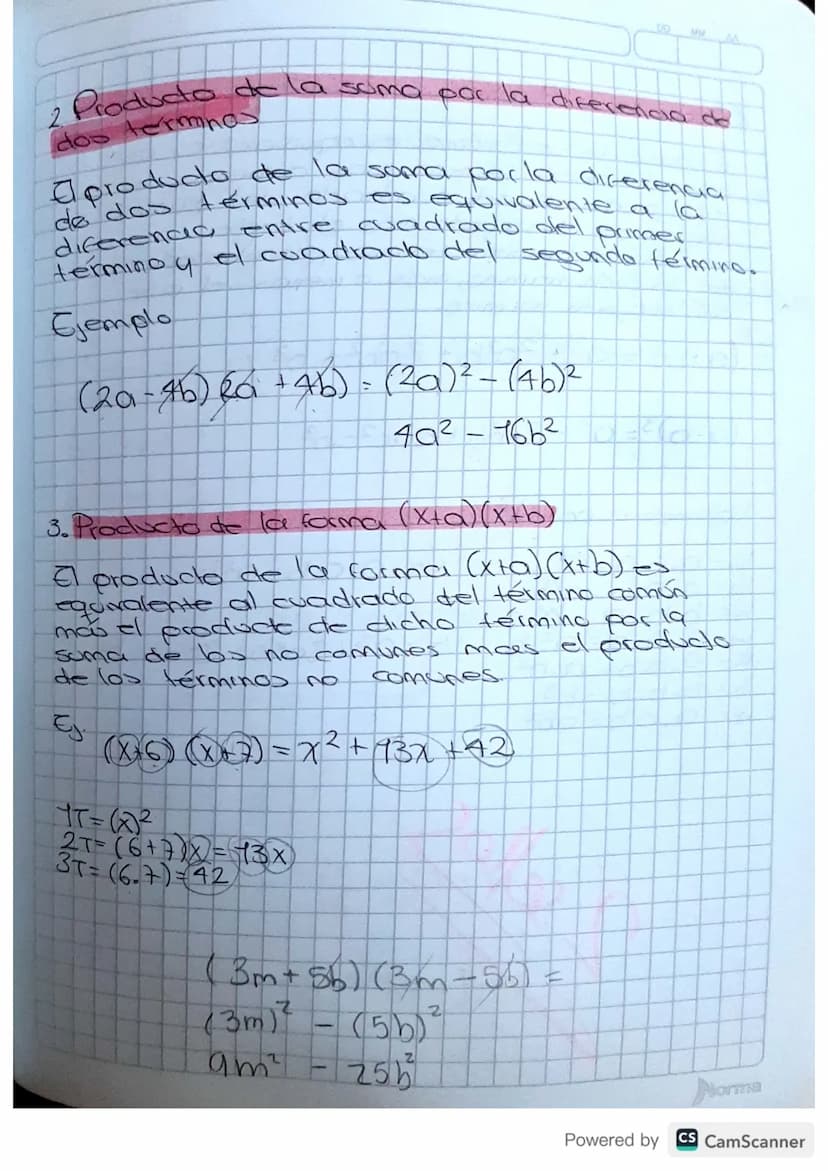 DD MM AA
2 Producto de la suma por la diferencia de
dos terminos
El producto de la soma por la diferencia
de dos términos es equivalente a la
diferencia entre cuadrado del primer
término y el cuadrado del segundo término.
Ejemplo
(2a-4b) (2a +4b) = (2a)² - (4b)²
4a² - 16b²
3. Producto de la forma (x+a)(x+b)
El producto de la forma (x+a)(x+b) es
equivalente al cuadrado del término común
más el producto de dicho término por la
suma de los no comunes maes el producto
de los términos no comunes.
Ej.
(x+6) (x+7) = x² + 13x + 42
1T = (x)²
2T= (6+7)x = 13x
3T= (6.7) = 42
(3m + 5b) (3m - 5b) =
(3m)² - (5b)²
9m² - 25b²
Norma
Powered by CS CamScanner